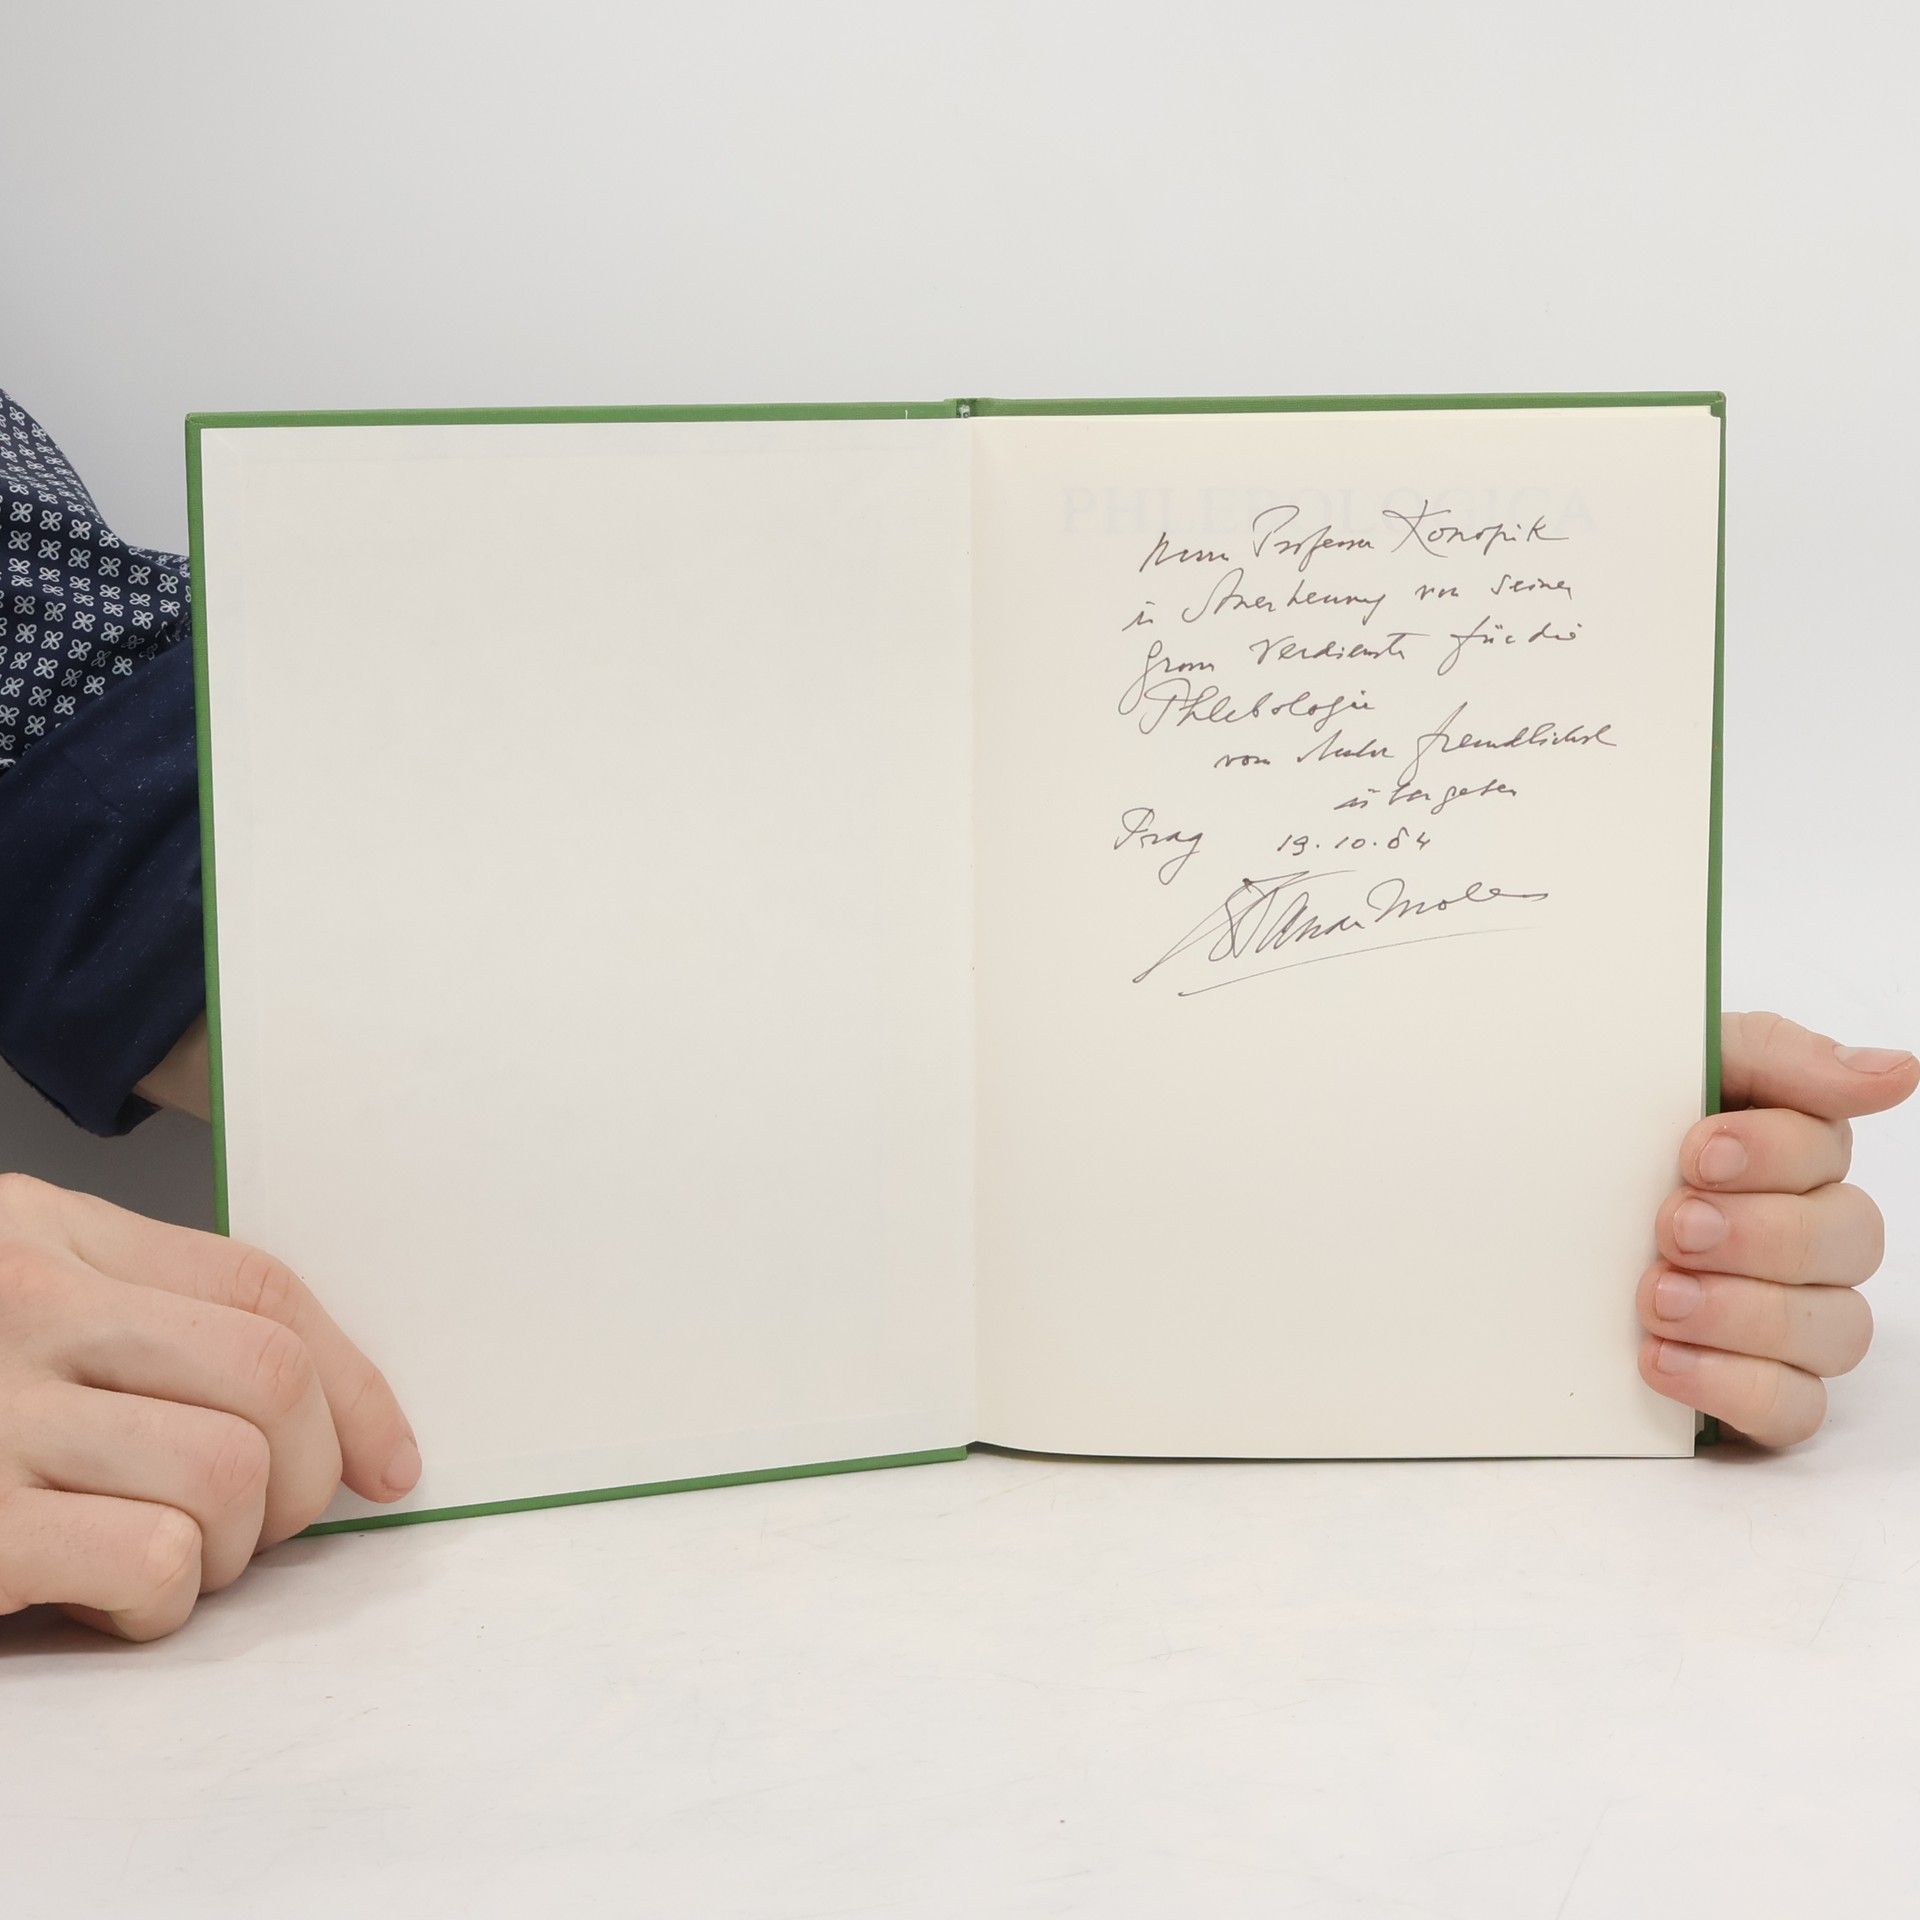 PHLEBOLOGICA
Herrn Professor Konopik
in Anerkennung von seinen
grossen Verdienste für die
Phlebologie
vom Autor freundlichst
übergeben
Prag 19.10.84